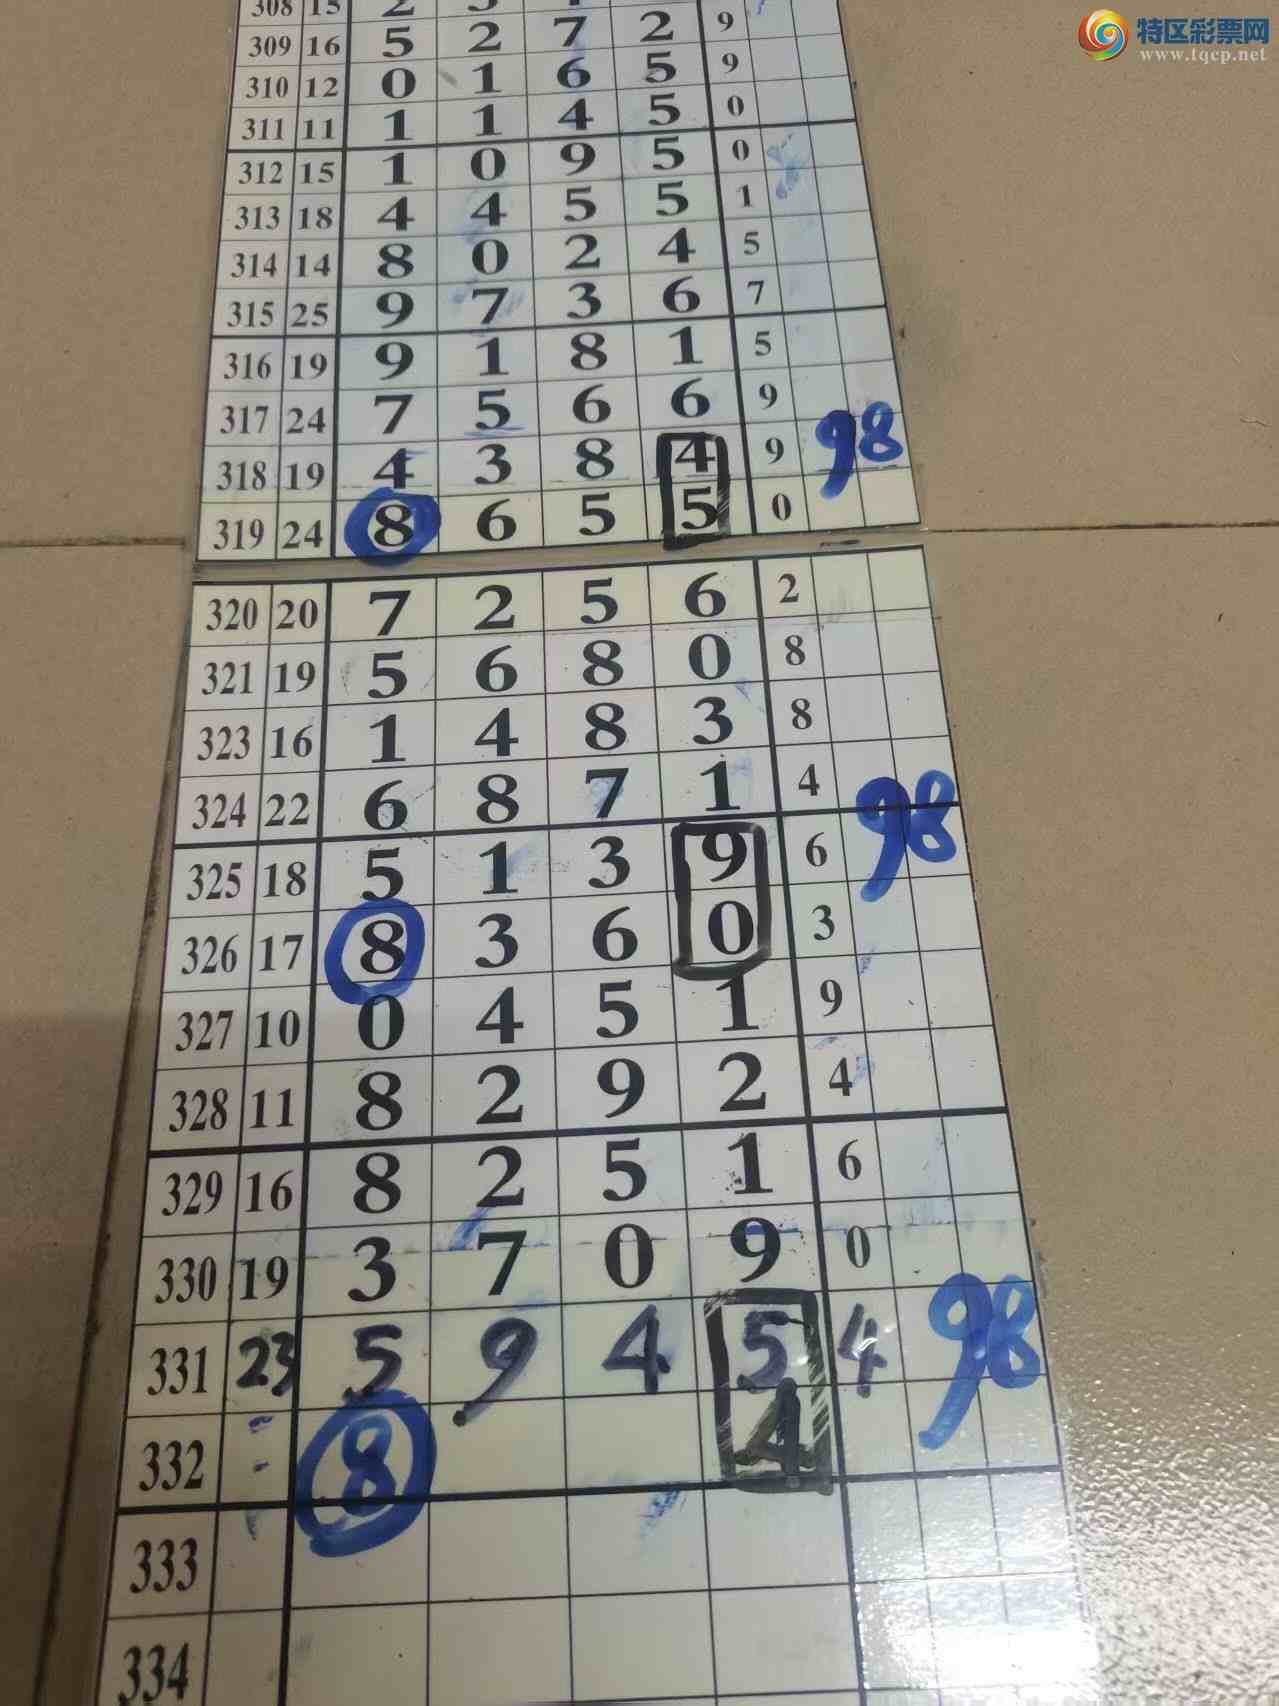 特区彩票网
www.tqcp.net
308 15 2
309 16 5 2 7 2 9
310 12 0 1 6 5 9
311 11 1 1 4 5 0
312 15 1 0 9 5 0
313 18 4 4 5 5 1
314 14 8 0 2 4 5
315 25 9 7 3 6 7
316 19 9 1 8 1 5
317 24 7 5 6 6 9
318 19 4 3 8 4 9 98
319 24 8 6 5 5 0
320 20 7 2 5 6 2
321 19 5 6 8 0 8
323 16 1 4 8 3 8
324 22 6 8 7 1 4
325 18 5 1 3 9 6 98
326 17 8 3 6 0 3
327 10 0 4 5 1 9
328 11 8 2 9 2 4
329 16 8 2 5 1 6
330 19 3 7 0 9 0
331 23 5 9 4 5 4 98
332 8 4
333
334